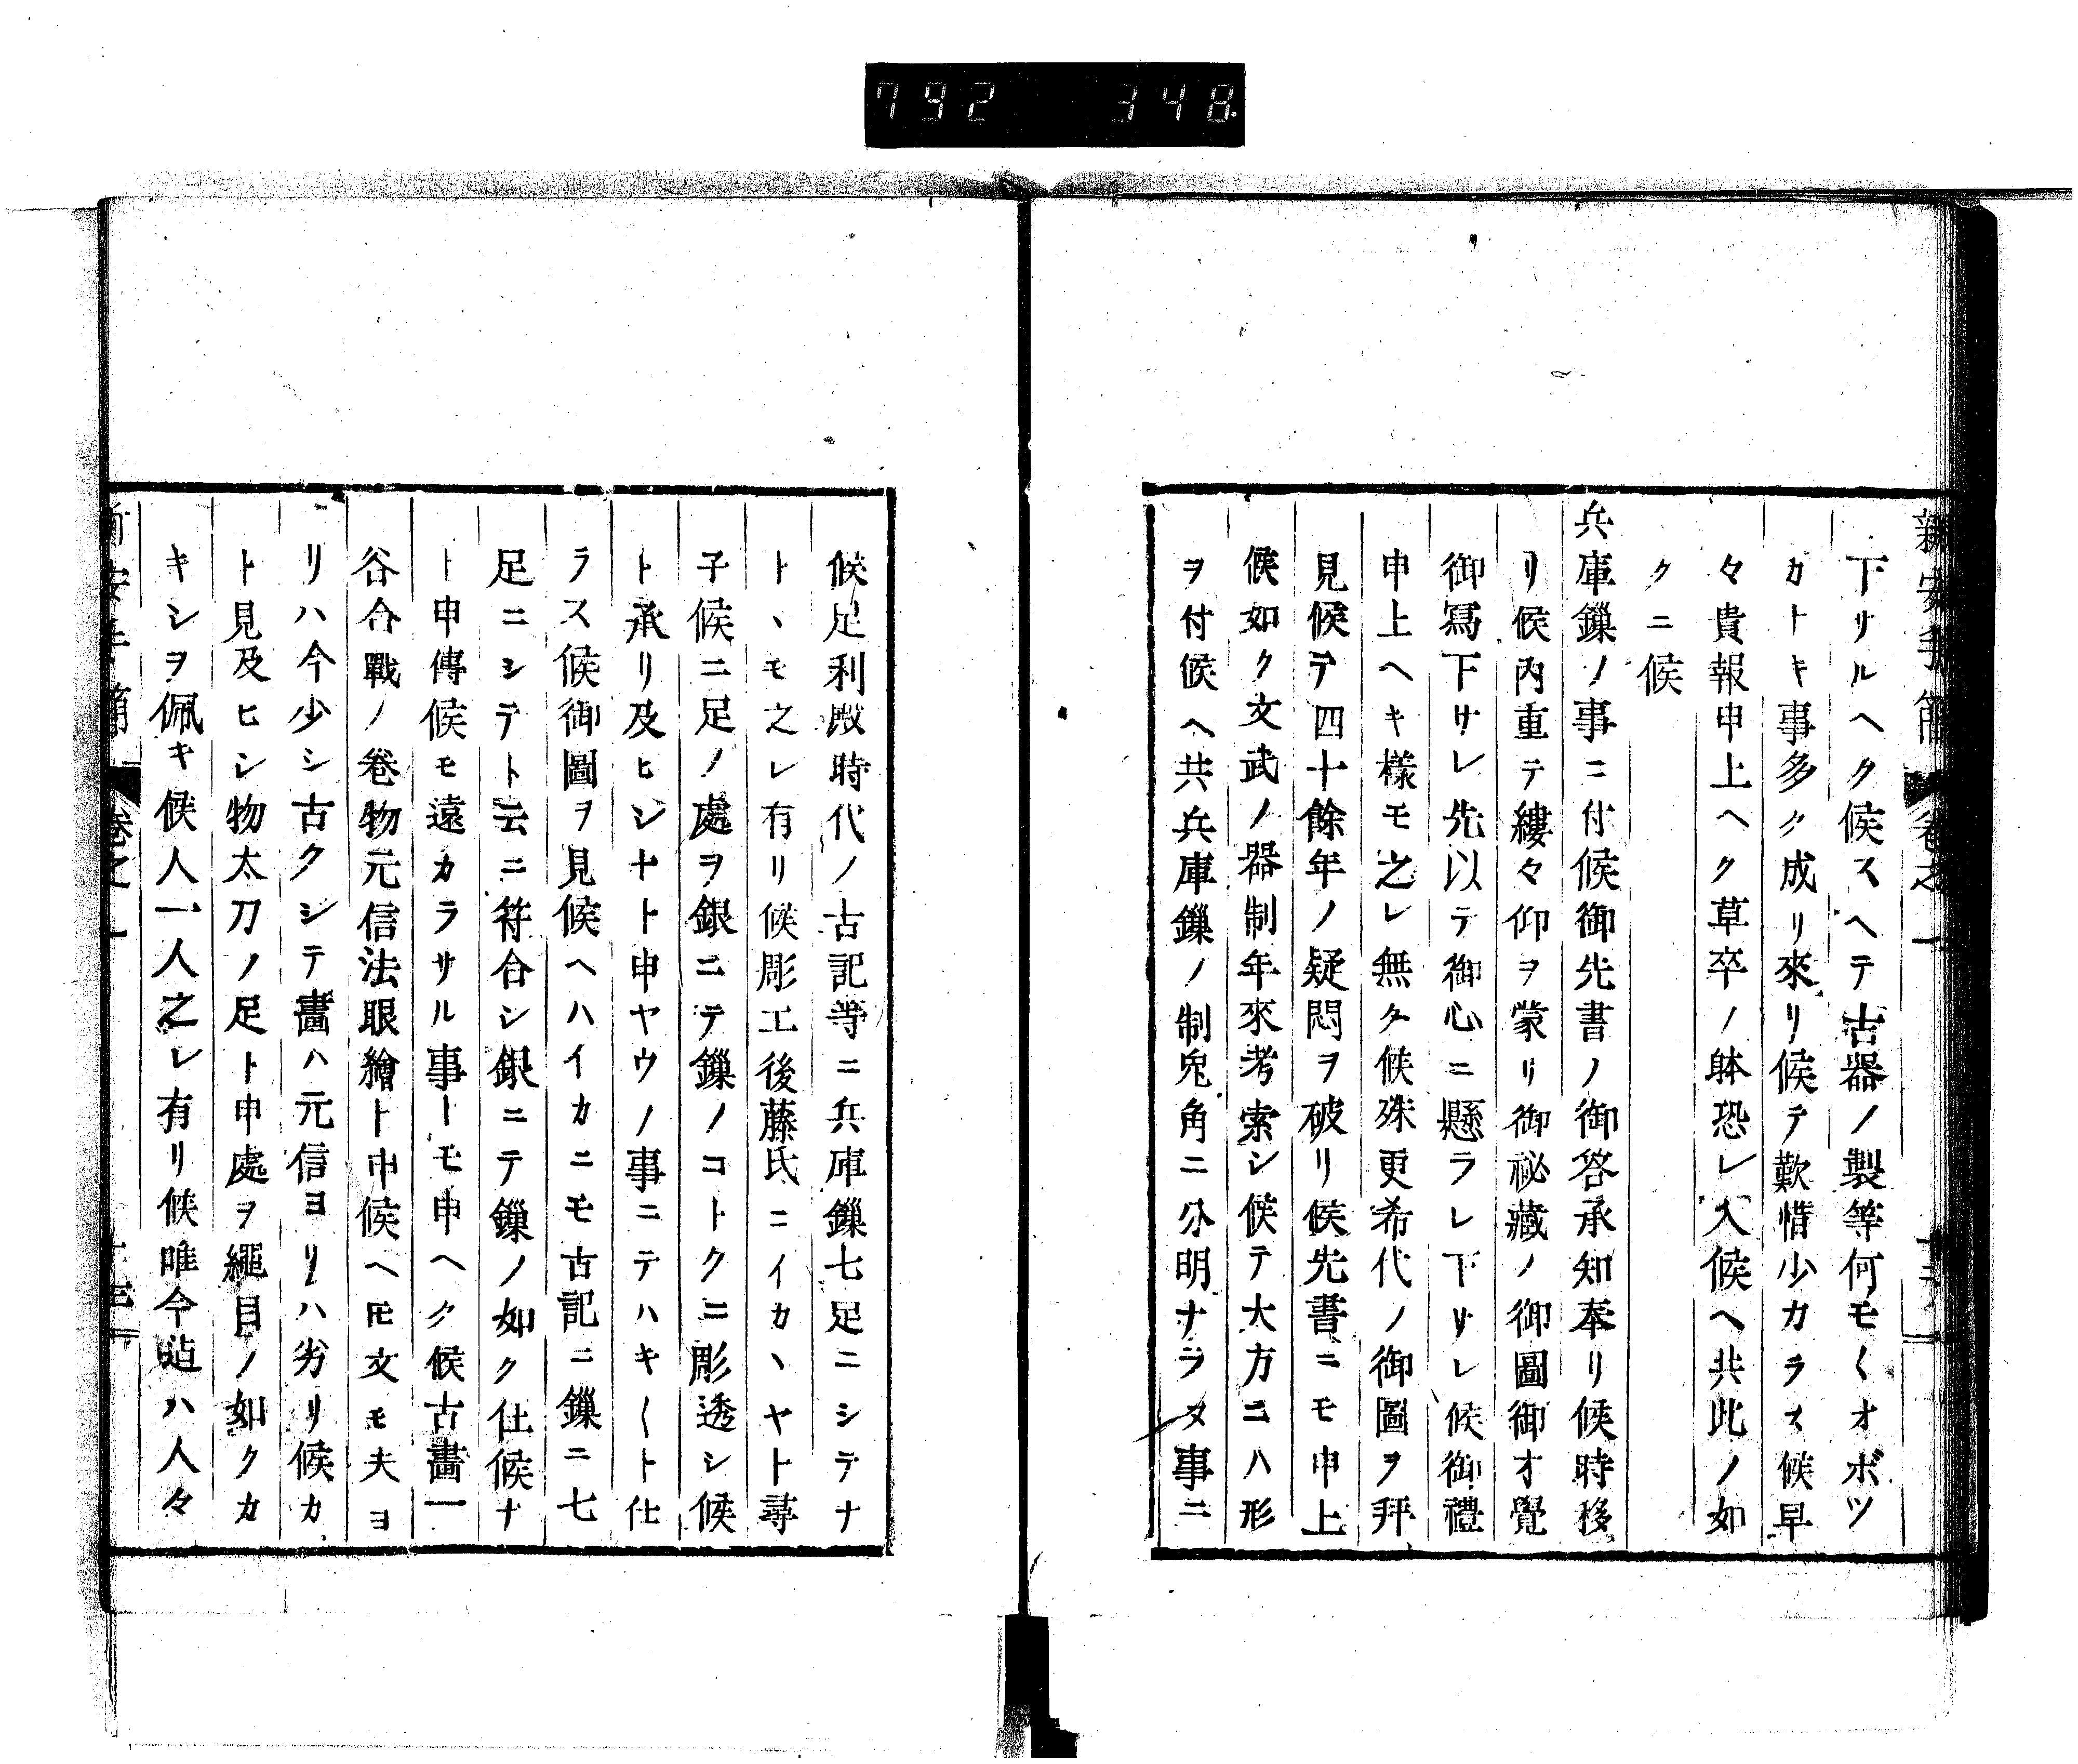 792 348
新安手簡 卷之一
下サルヘク候スヘテ古器ノ製等何モ〱オボツ
カトキ事多ク成リ來リ候テ歎惜少カラス候早
々貴報申上ヘク草卒ノ躰恐レ入候ヘ共此ノ如
クニ候
兵庫鏁ノ事ニ付候御先書ノ御答承知奉リ候時移
リ候内重テ縷々仰ヲ蒙リ御祕藏ノ御圖御才覺
御寫下サレ先以テ御心ニ懸ラレ下サレ候御禮
申上ヘキ樣モ之レ無ク候殊更希代ノ御圖ヲ拜
見候テ四十餘年ノ疑悶ヲ破リ候先書ニモ申上
候如ク文武ノ器制年來考索シ候テ大方ニハ形
ヲ付候ヘ共兵庫鏁ノ制兎角ニ分明ナラヌ事ニ
候足利殿時代ノ古記等ニ兵庫鏁七足ニシテナ
トヽモ之レ有リ候彫工後藤氏ニイカヽヤト尋
子候ニ足ノ處ヲ銀ニテ鏁ノコトクニ彫透シ候
ト承リ及ヒシナト申ヤウノ事ニテハキ〱ト仕
ラス候御圖ヲ見候ヘハイカニモ古記ニ鏁ニ七
足ニシテト云ニ符合シ銀ニテ鏁ノ如ク仕候ナ
ト申傳候モ遠カラサル事トモ申ヘク候古畵一
谷合戰ノ卷物元信法眼繪ト申候ヘ𪜈文モ夫ヨ
リハ今少シ古クシテ畵ハ元信ヨリハ劣リ候カ
ト見及ヒシ物太刀ノ足ト申處ヲ繩目ノ如クカ
キシヲ佩キ候人一人之レ有リ候唯今迠ハ人々
新安手簡 卷之一